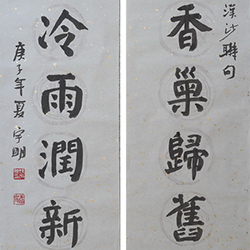 香巢歸舊
漢沙聯句
冷雨潤新
庚子年夏宇明